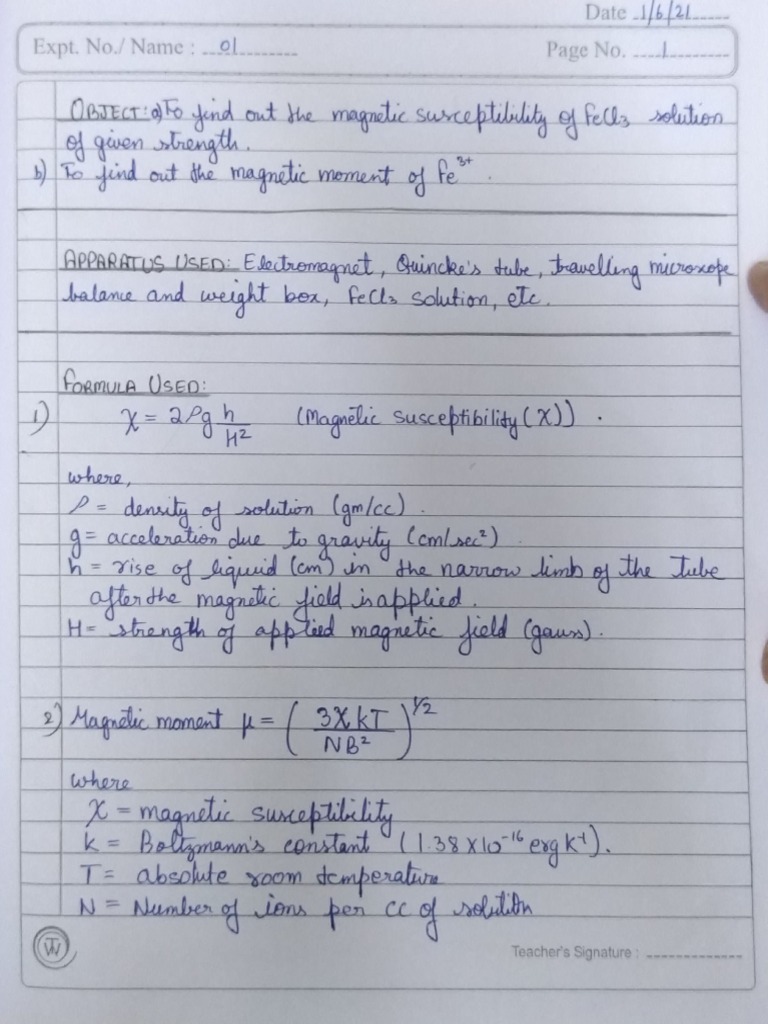 Date 1/6/21
Expt. No./ Name : 01
Page No. 1
OBJECT: a) To find out the magnetic susceptibility of FeCl3 solution
of given strength.
b) To find out the magnetic moment of Fe³⁺.
APPARATUS USED: Electromagnet, Quincke's tube, travelling microscope
balance and weight box, FeCl3 solution, etc.
FORMULA USED:
1) χ = 2ρg h/H² (Magnetic susceptibility (χ)).
where,
ρ = density of solution (gm/cc).
g = acceleration due to gravity (cm/sec²)
h = rise of liquid (cm) in the narrow limb of the tube
after the magnetic field is applied.
H = strength of applied magnetic field (gauss).
2) Magnetic moment μ = (3χkT/NB²)^1/2
where
χ = magnetic susceptibility
k = Boltzmann's constant (1.38 x 10⁻¹⁶ erg k⁻¹).
T = absolute room temperature
N = Number of ions per cc of solution
Teacher's Signature :